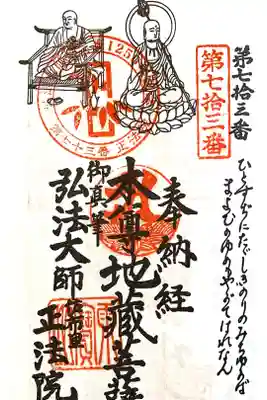 第七拾三番
第七拾三番
ひとすぢにたゞしきのりのみちゆかば
まよひのゆめもやがてはれなん
奉納経
本尊地藏菩薩
御真筆
弘法大師
佐布里
正法院
125
第七十三番 正法